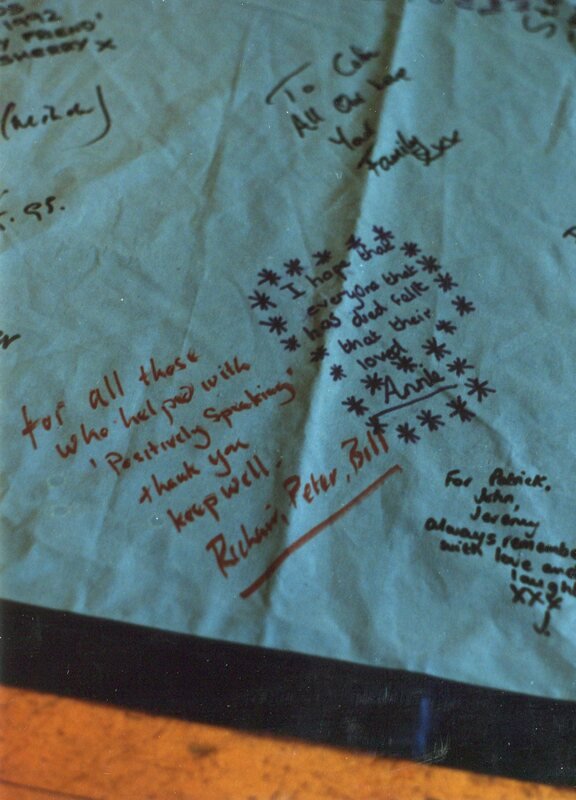 1992
FRIEND'
SHERRY X
To
All Our
Your
Family xxx
95.
I hope that
everyone that
has died fallt
that their
loved
Annie
for all those
who helped with
'Positively Speaking'
thank you
keep well.
Richard, Peter, Bill
For Patrick,
John,
Jeremy
always remembe
with love and
laugh
XXX
J.